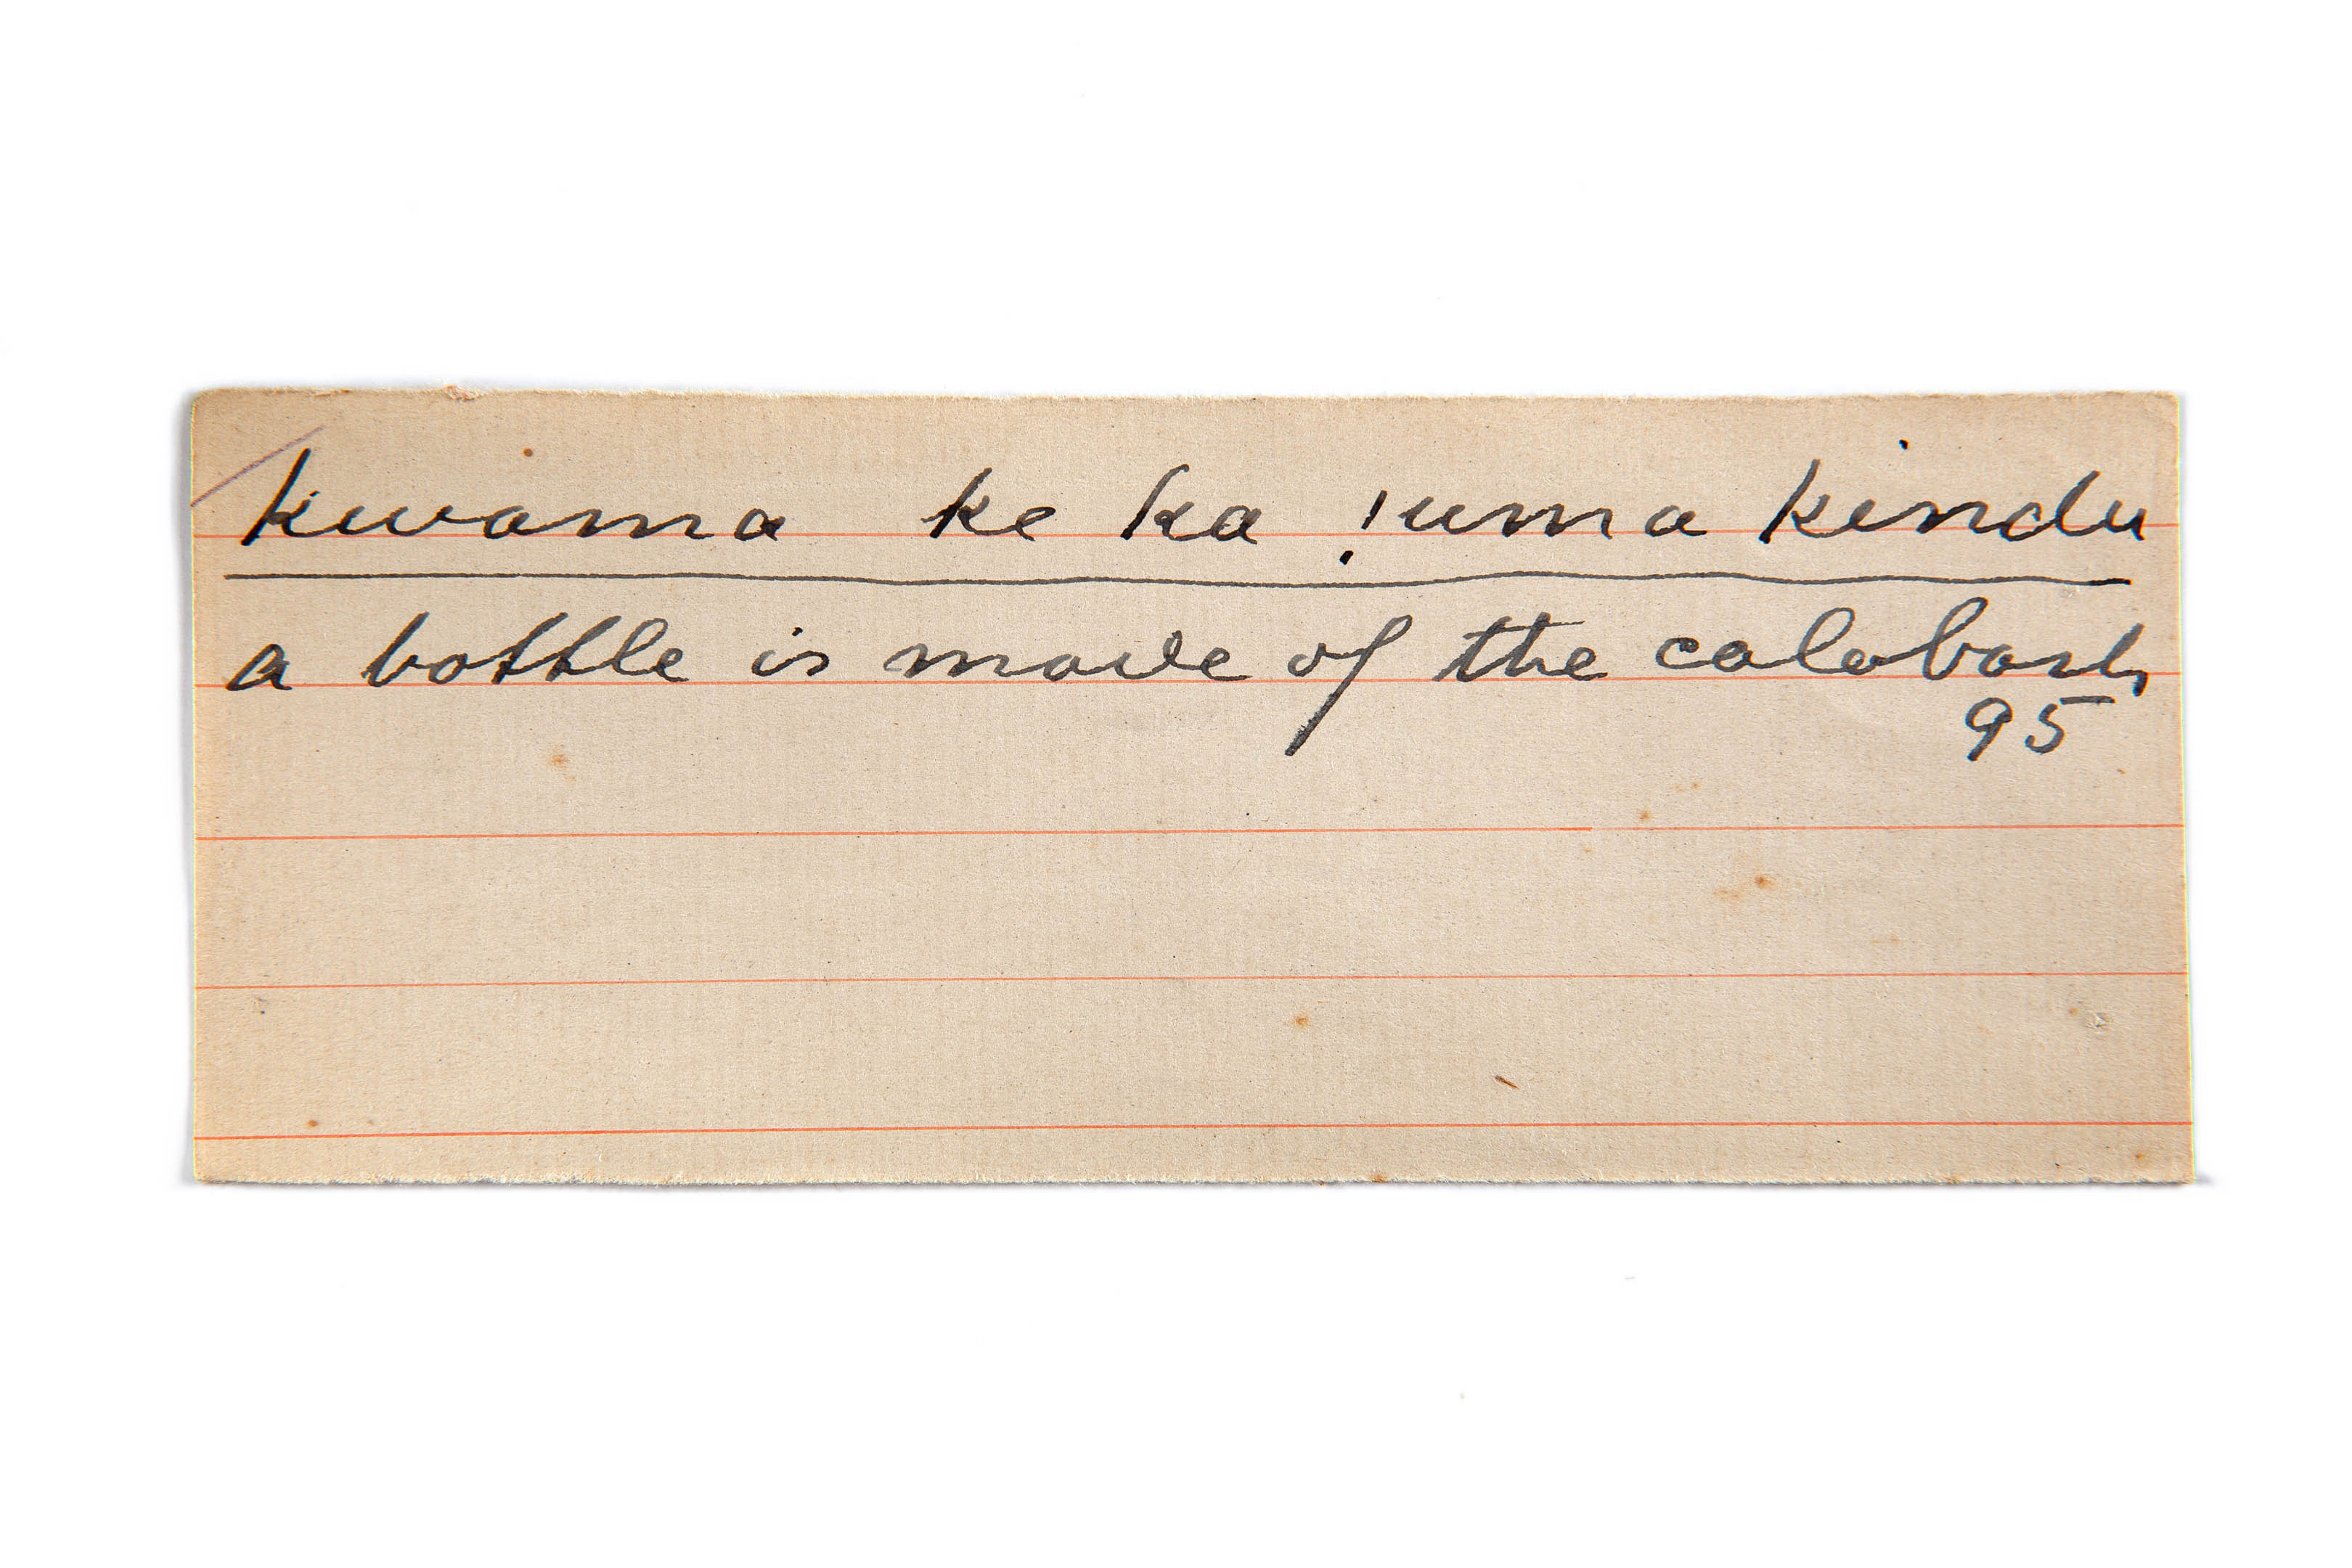 kwama ke ka !uma kindu
a bottle is made of the calabash
95